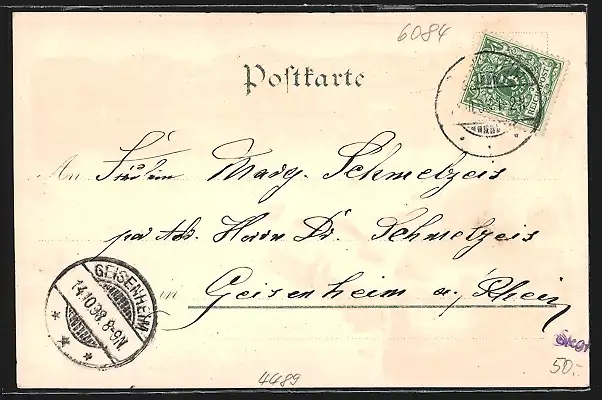 6084
Postkarte
REICHSPOST
An Fräulein Marg. Schmelzeis
per Adr. Herrn Dr. Schmelzeis
in Geisenheim a/Rhein
GEISENHEIM
14.10.98. 8-9N.
50.-
4489